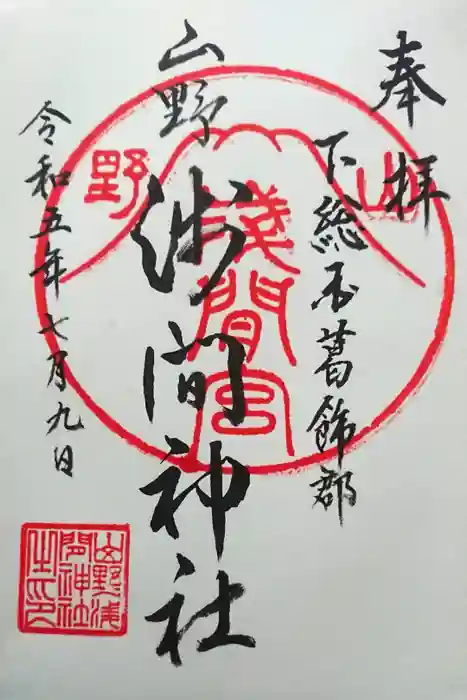 奉拝
下総不葛飾郡
山野
浅間神社
令和五年七月九日
山野
浅間宮
山野浅間神社之印